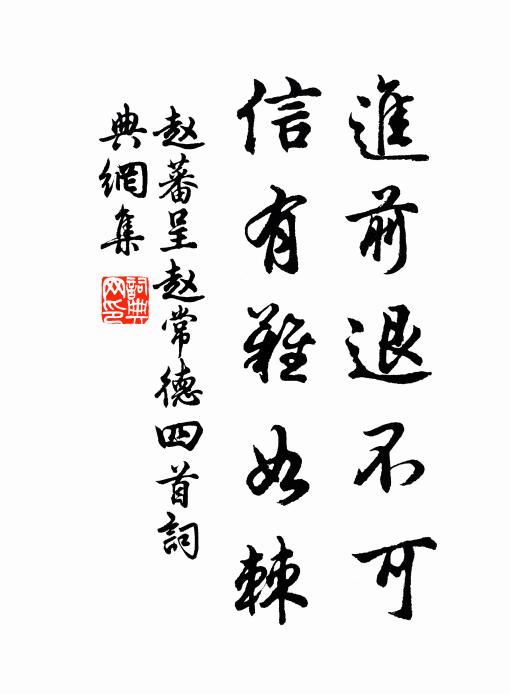 進前退不可
信有難如棘
赵蕃呈赵常德四首詞
典網集
詞典
网印